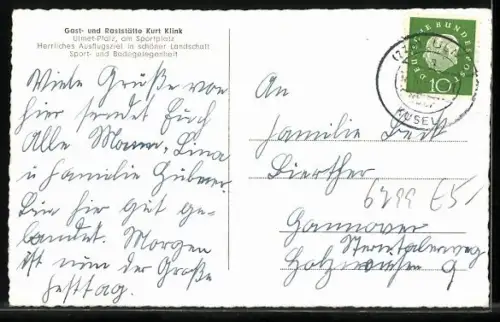 Gast- und Raststätte Kurt Klink
Ulmet-Pfalz, am Sportplatz
Herrliches Ausflugsziel in schöner Landschaft
Sport- und Badegelegenheit
Viele Grüße von
hier sendet Euch
Alle Mama, Lina
u Familie Hübner.
Bin hier gut ge-
landet. Morgen
ist nun der Große
Festtag.
DEUTSCHE BUNDESPOST
10
KUSEL
An
Familie
Hannover
9